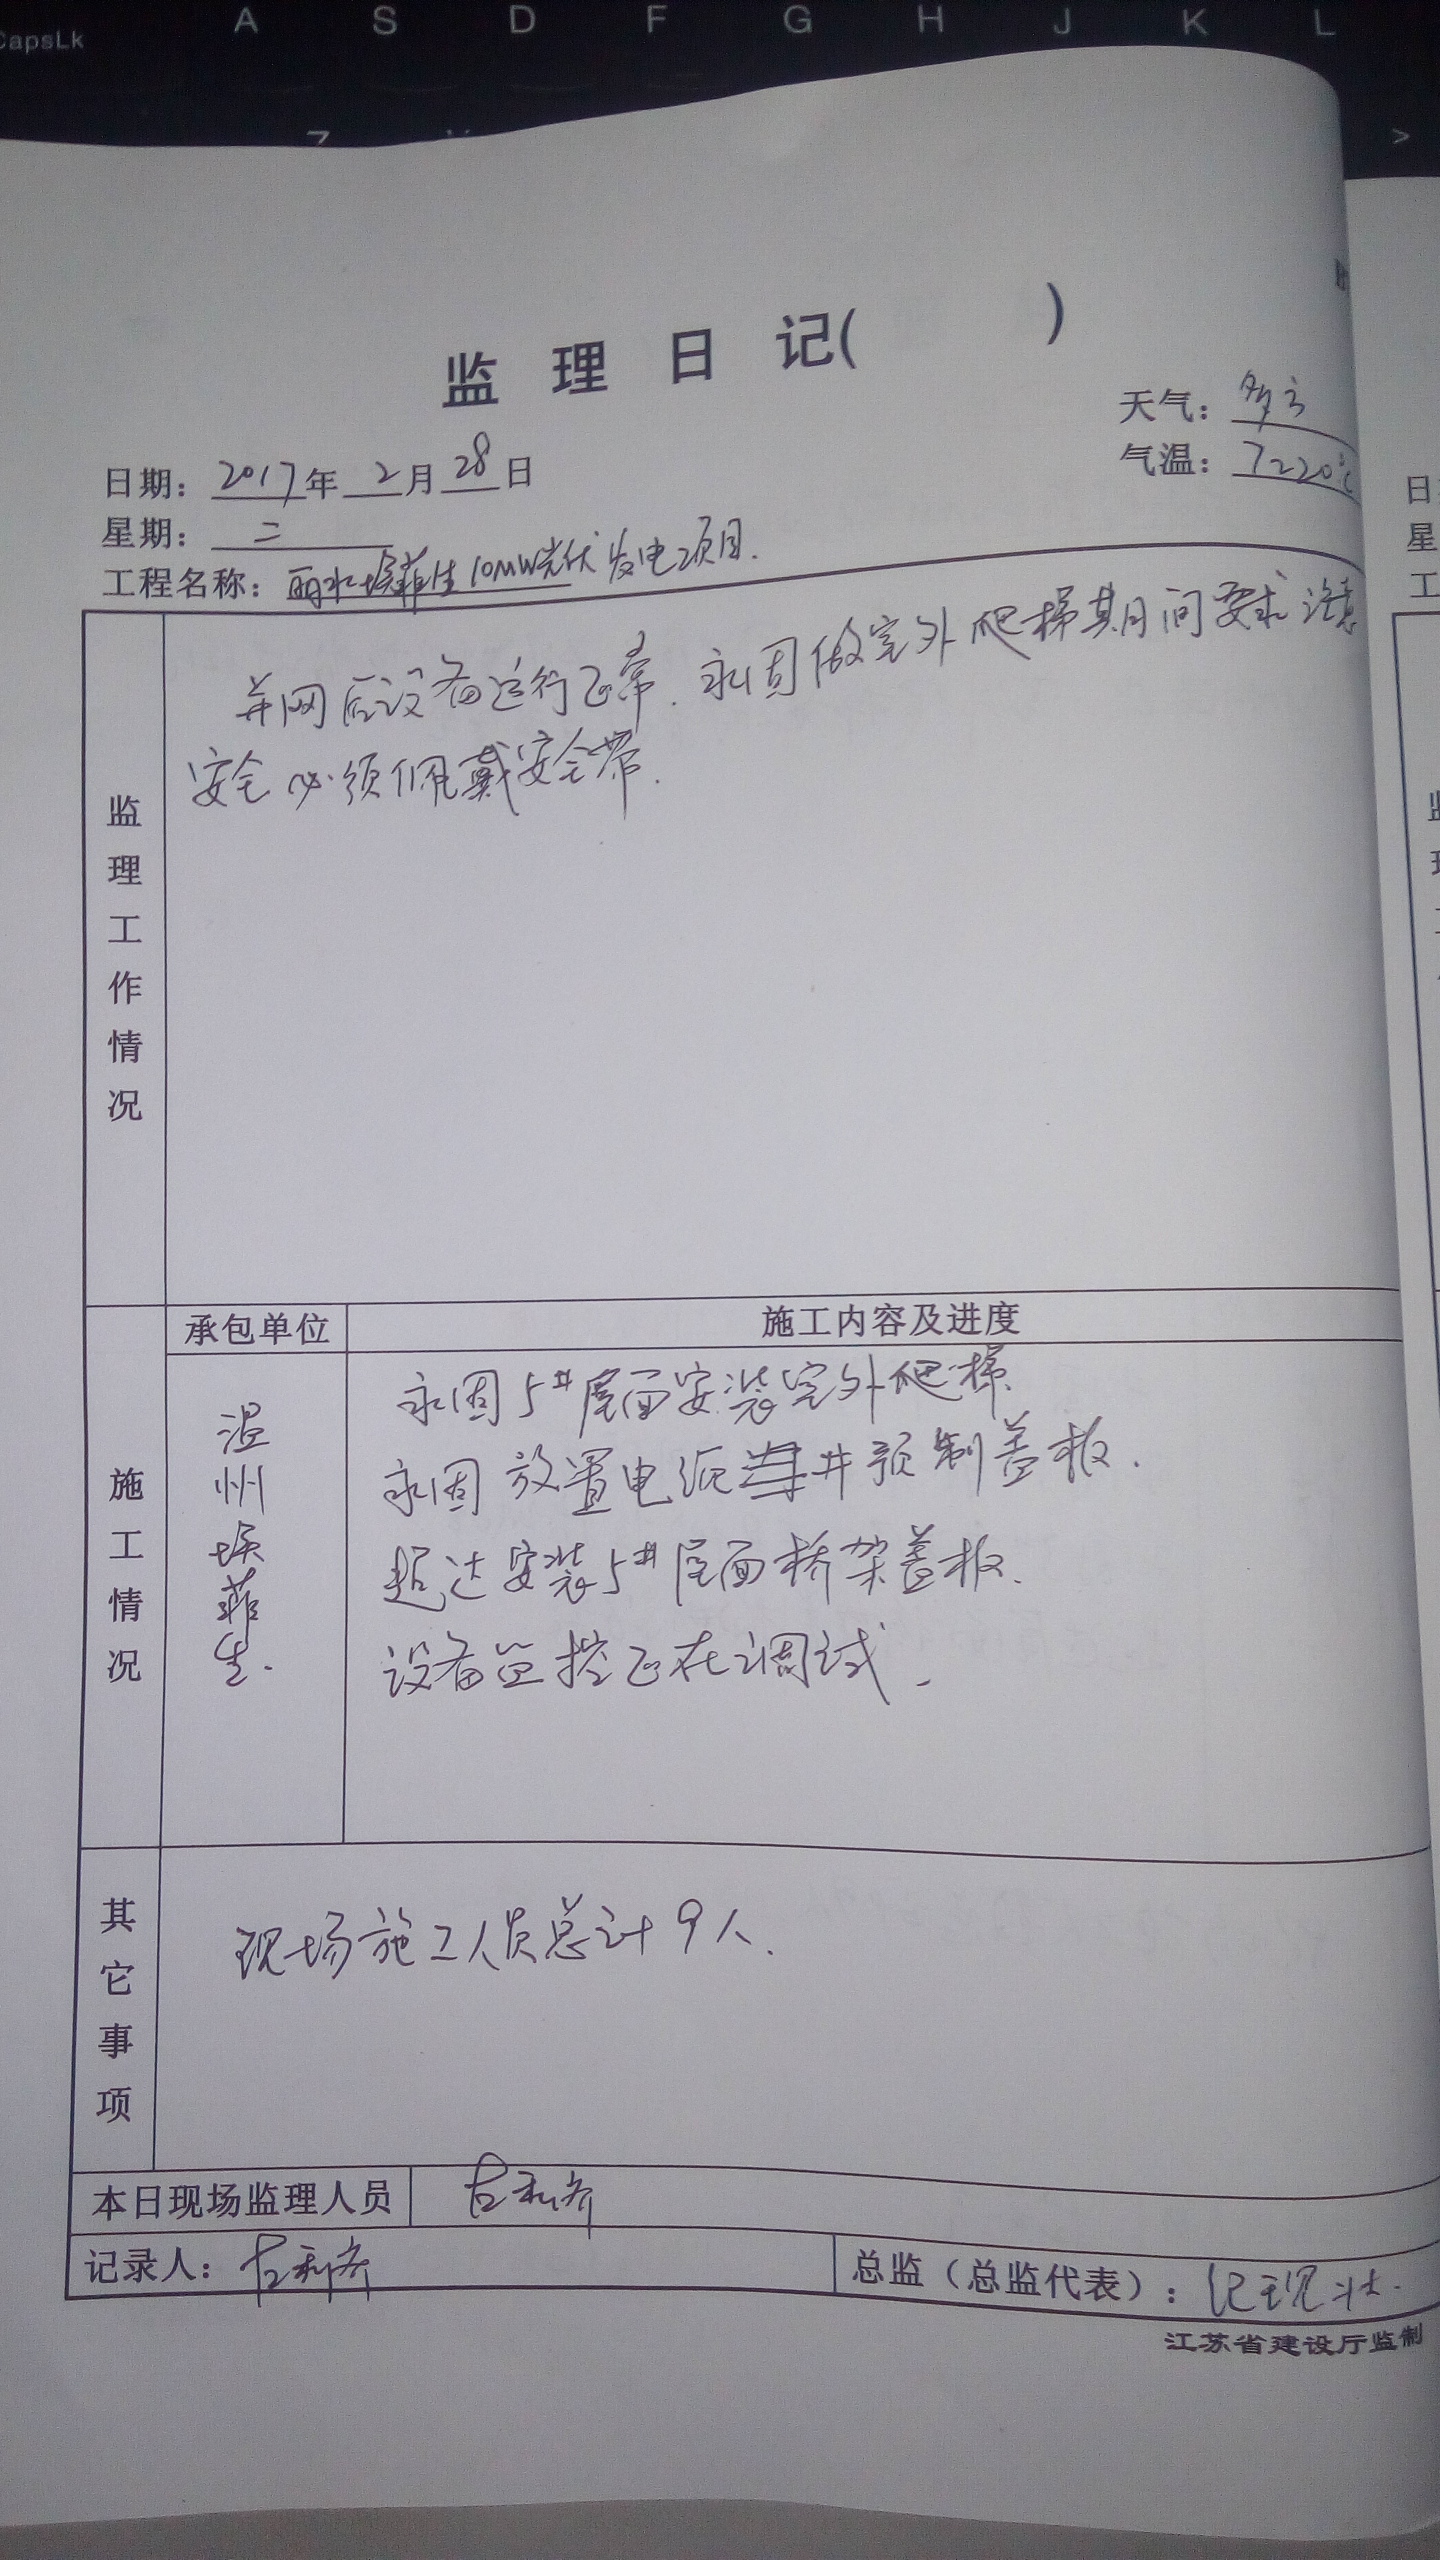 CapsLk A S D F G H J K L
Z >
监理日记( )
天气：多云
日期：2017年2月28日
气温：7~20℃
星期：二
工程名称：丽水埃菲生10MW光伏发电项目.
监理工作情况
并网后设备运行正常.永固做室外爬梯其月间要求注意
安全必须佩戴安全带.
施工情况
承包单位 施工内容及进度
温州埃菲生.
永固5#屋面安装室外爬梯.
永固放置电缆井预制盖板.
超达安装5#屋面桥架盖板.
设备监控正在调试.
其它事项
现场施工人员总计9人.
本日现场监理人员
记录人：
总监（总监代表）：
江苏省建设厅监制
日
星
工